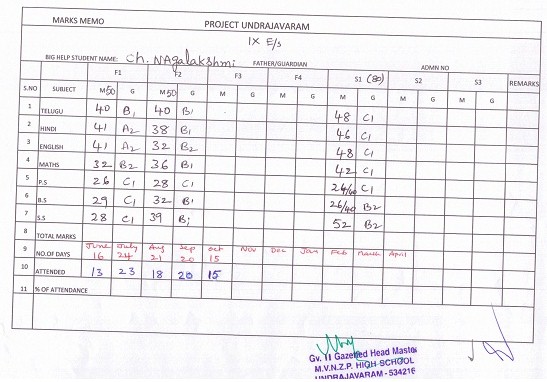 MARKS MEMO PROJECT UNDRAJAVARAM
IX E/s
BIG HELP STUDENT NAME: Ch. NAgalakshmi FATHER/GUARDIAN ADMN NO
F1 F2 F3 F4 S1 (80) S2 S3
S.NO SUBJECT M50 G M50 G M G M G M G M G M G REMARKS
1 TELUGU 40 B1 40 B1 48 C1
2 HINDI 41 A2 38 B1 46 C1
3 ENGLISH 41 A2 32 B2 48 C1
4 MATHS 32 B2 36 B1 42 C1
5 P.S 26 C1 28 C1 24/40 C1
6 B.S 29 C1 32 B1 26/40 B2
7 S.S 28 C1 39 B1 52 B2
8 TOTAL MARKS
9 NO.OF DAYS June 16 July 24 Aug 21 Sep 20 Oct 15 Nov Dec Jan Feb March April
10 ATTENDED 13 23 18 20 15
11 % OF ATTENDANCE
Gv. II Gazetted Head Master
M.V.N.Z.P. HIGH SCHOOL
UNDRAJAVARAM - 534216